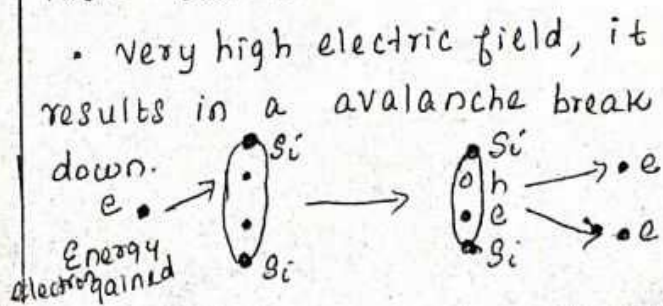 • Very high electric field, it
results in a avalanche break
down.
Si Si
h
e e e
e
Si Si
Energy
electron gained